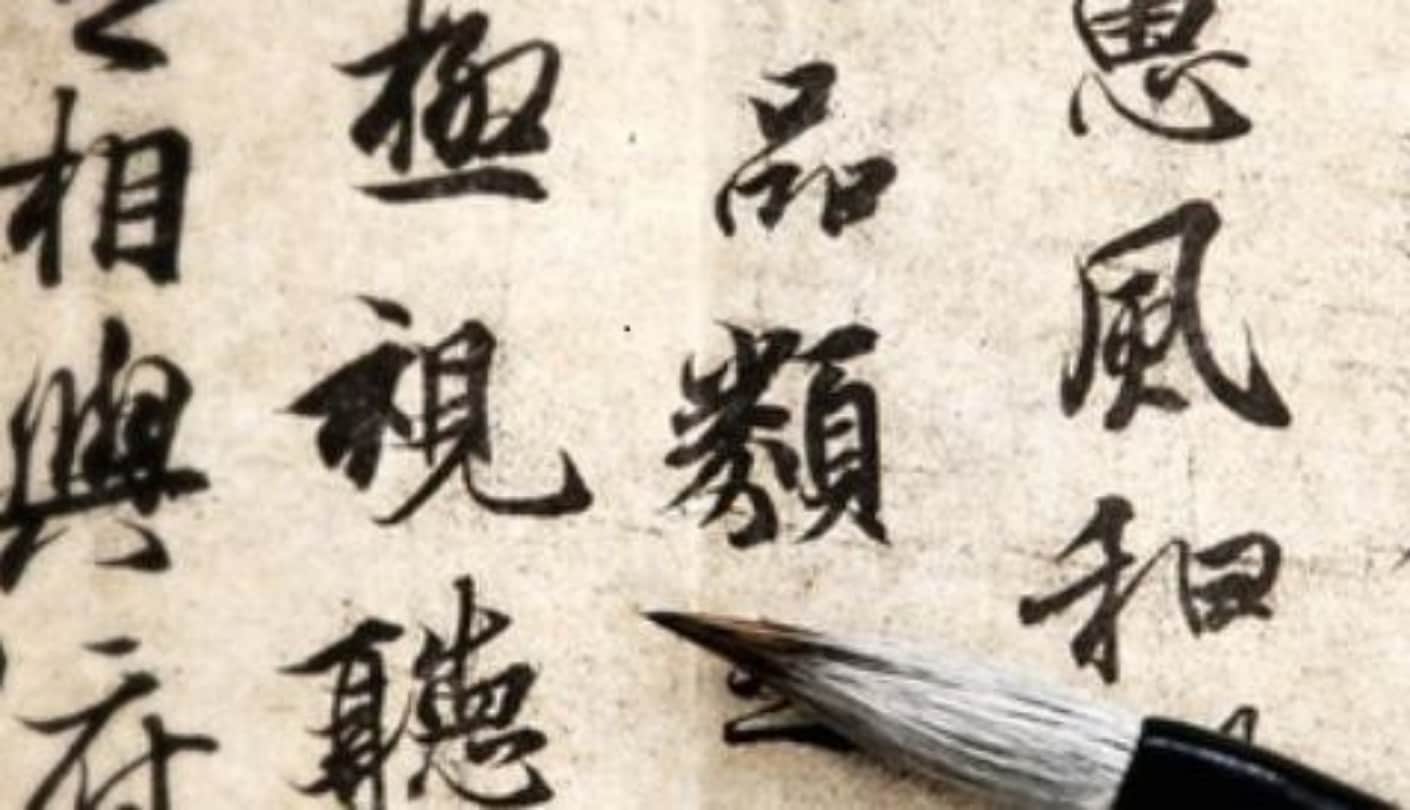 惠風和
品類之
極視聽
之相與俯